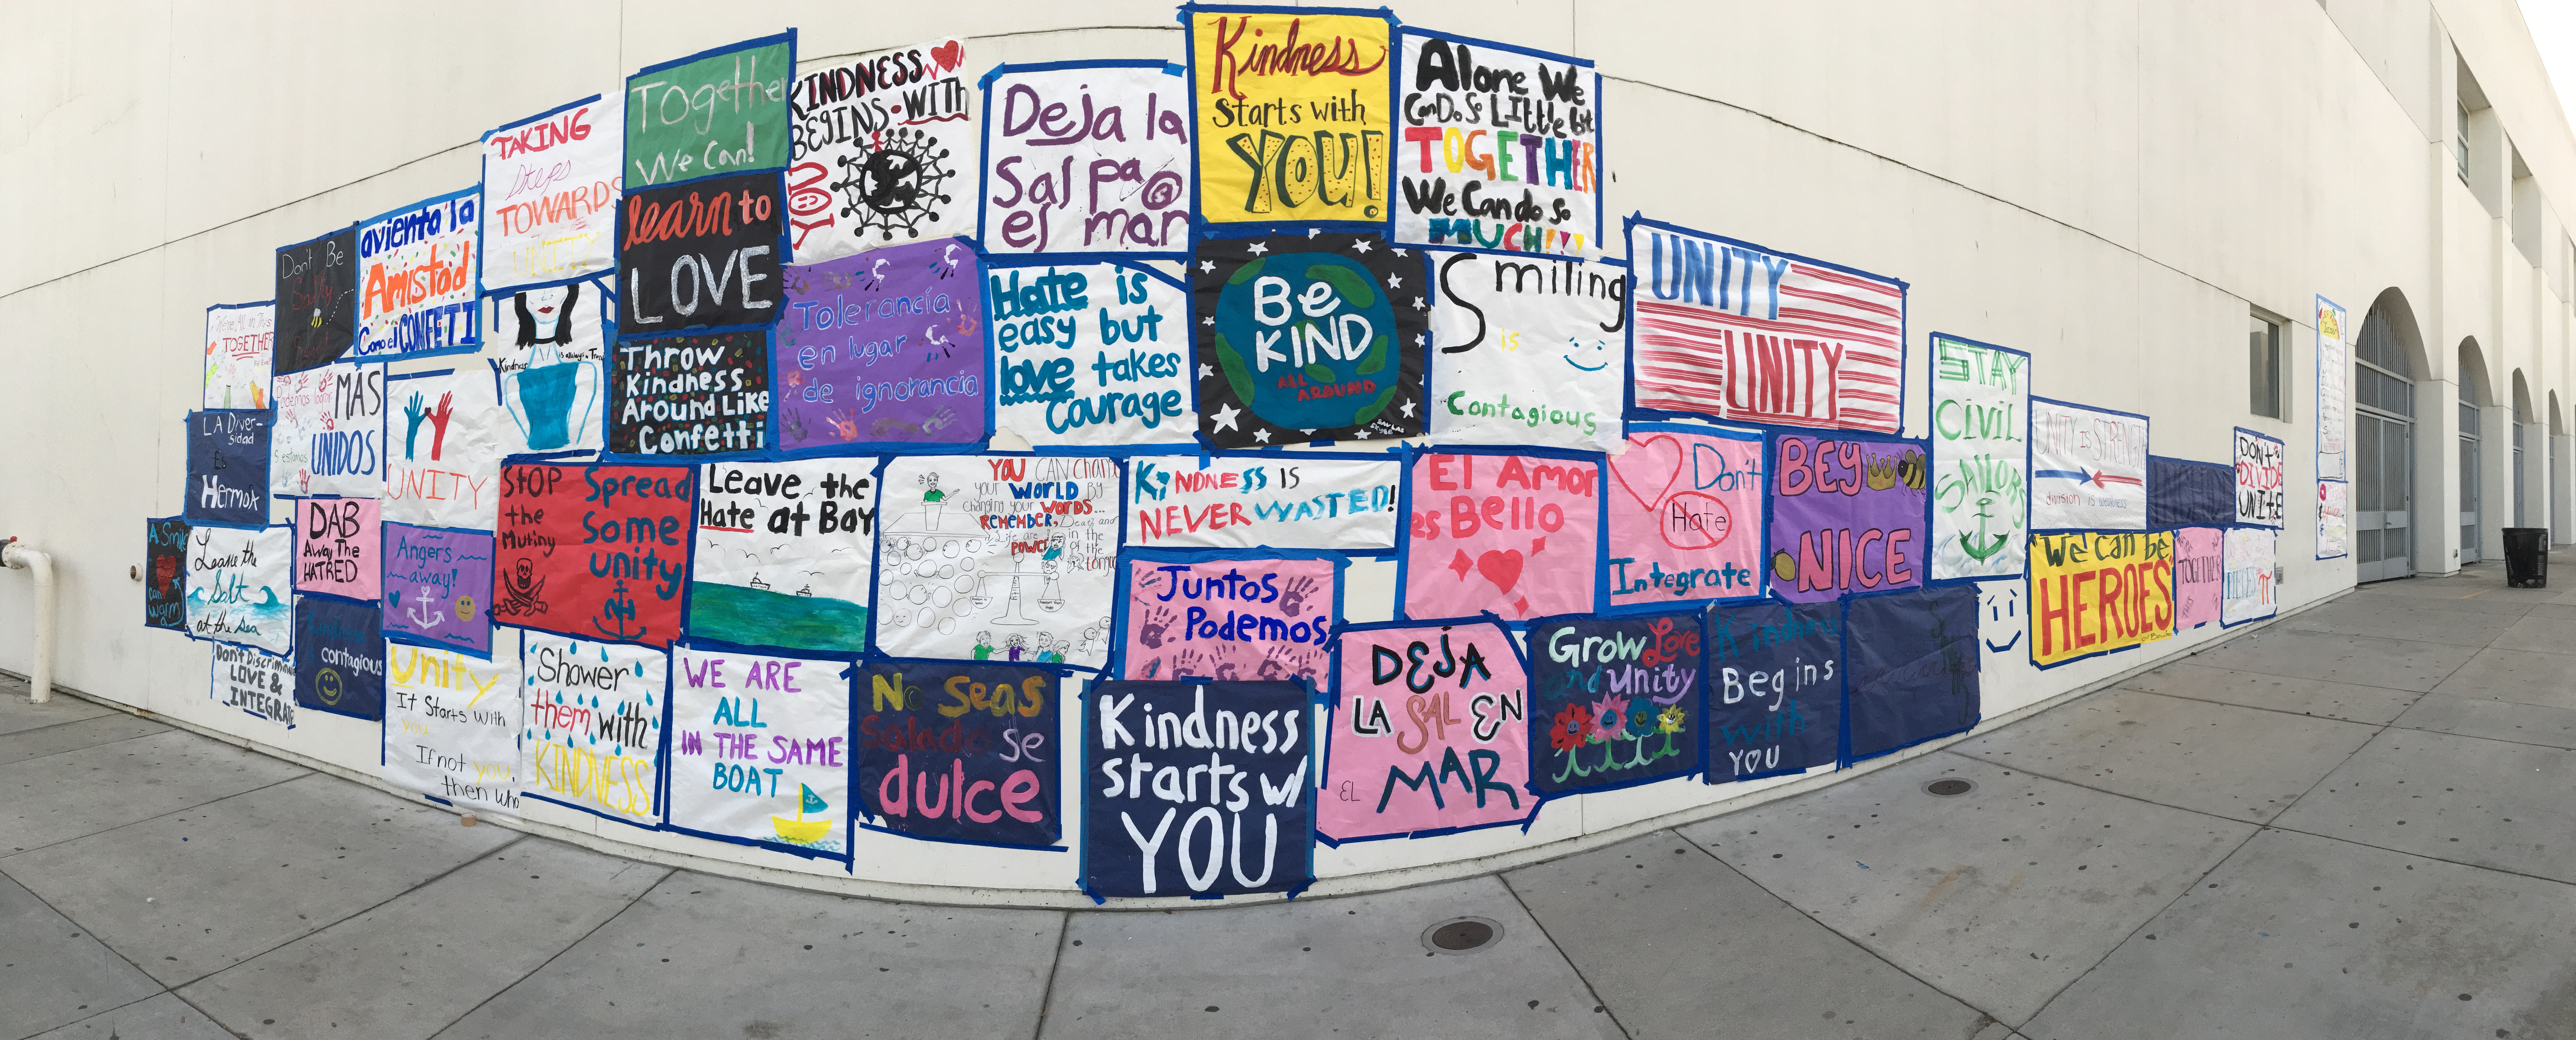 TOGETHER
Don't Be
Salty
avienta la
Amistad
Como el CONFETI
TAKING
Steps
TOWARDS
UNITY
Together
We Can!
KINDNESS
BEGINS WITH
YOU
Deja la
Sal pa@
el mar
Kindness
Starts with
YOU!
Alone We
Can Do So Little but
TOGETHER
We Can do so
MUCH!!!
learn to
LOVE
LA Diver-
sidad
ES
Hermosa
MÁS
Podemos lograr
Si estamos
UNIDOS
UNITY
Kindness is always
Throw
Kindness
Around Like
Confetti
Tolerancia
en lugar
de ignorancia
Hate is
easy but
love takes
Courage
Be
KIND
ALL
AROUND
Smiling
is
Contagious
UNITY
UNITY
STAY
CIVIL
SAILORS
UNITY IS STRENGTH
division is weakness
DON'T
DIVIDE
UNITE
A Smile
can
warm
Leave the
Salt
at the Sea
DAB
Away The
HATRED
Angers
away!
STOP
the
Mutiny
Spread
Some
unity
Leave the
Hate at Bay
YOU CAN Change
your WORLD BY
changing your WORDS...
REMEMBER, Death and
Life are in the
power of the
tongue
KINDNESS IS
NEVER WASTED!
El Amor
es Bello
Don't
Hate
Integrate
BEY
NICE
Juntos
Podemos
We can be
HEROES
TOGETHER
Don't Discriminate
LOVE &
INTEGRATE
Kindness
contagious
Unity
It Starts with
you.
If not you,
then who
Shower
them with
KINDNESS
WE ARE
ALL
IN THE SAME
BOAT
No Seas
Salado Se
dulce
Kindness
starts w/
YOU
DEJA
LA SAL EN
EL MAR
Grow Love
and Unity
Kindness
Begins
with
YOU